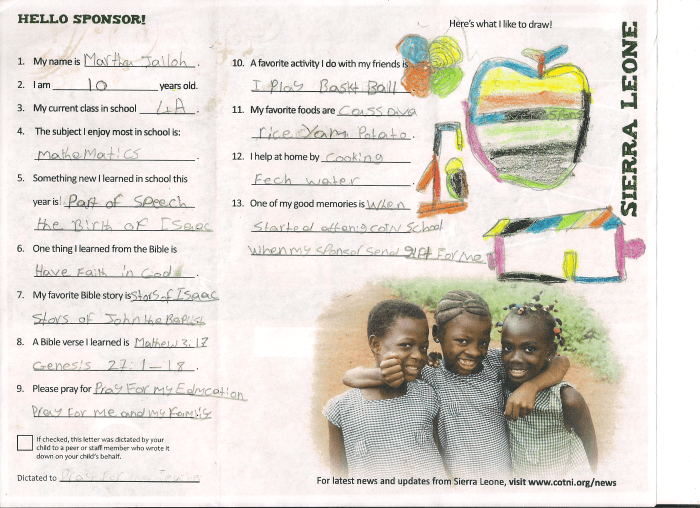 HELLO SPONSOR!
1. My name is Martha Jalloh.
2. I am 10 years old.
3. My current class in school 4A.
4. The subject I enjoy most in school is:
Mathematics.
5. Something new I learned in school this
year is: Part of Speech
the Birth of Isaac
6. One thing I learned from the Bible is
Have Faith in God.
7. My favorite Bible story is Stors of Isaac
Stors of John the Baptist
8. A Bible verse I learned is Mathew 3:17
Genesis 27:1-18.
9. Please pray for Pray For my Education
Pray For me and my Family
If checked, this letter was dictated by your
child to a peer or staff member who wrote it
down on your child's behalf.
Dictated to
Here's what I like to draw!
10. A favorite activity I do with my friends is
I Play Baskt Ball.
11. My favorite foods are Cassava
rice Yam Potato.
12. I help at home by Cooking
Fech water.
13. One of my good memories is when
Started COTN School
When my sponsor send gift For me
SIERRA LEONE
For latest news and updates from Sierra Leone, visit www.cotni.org/news